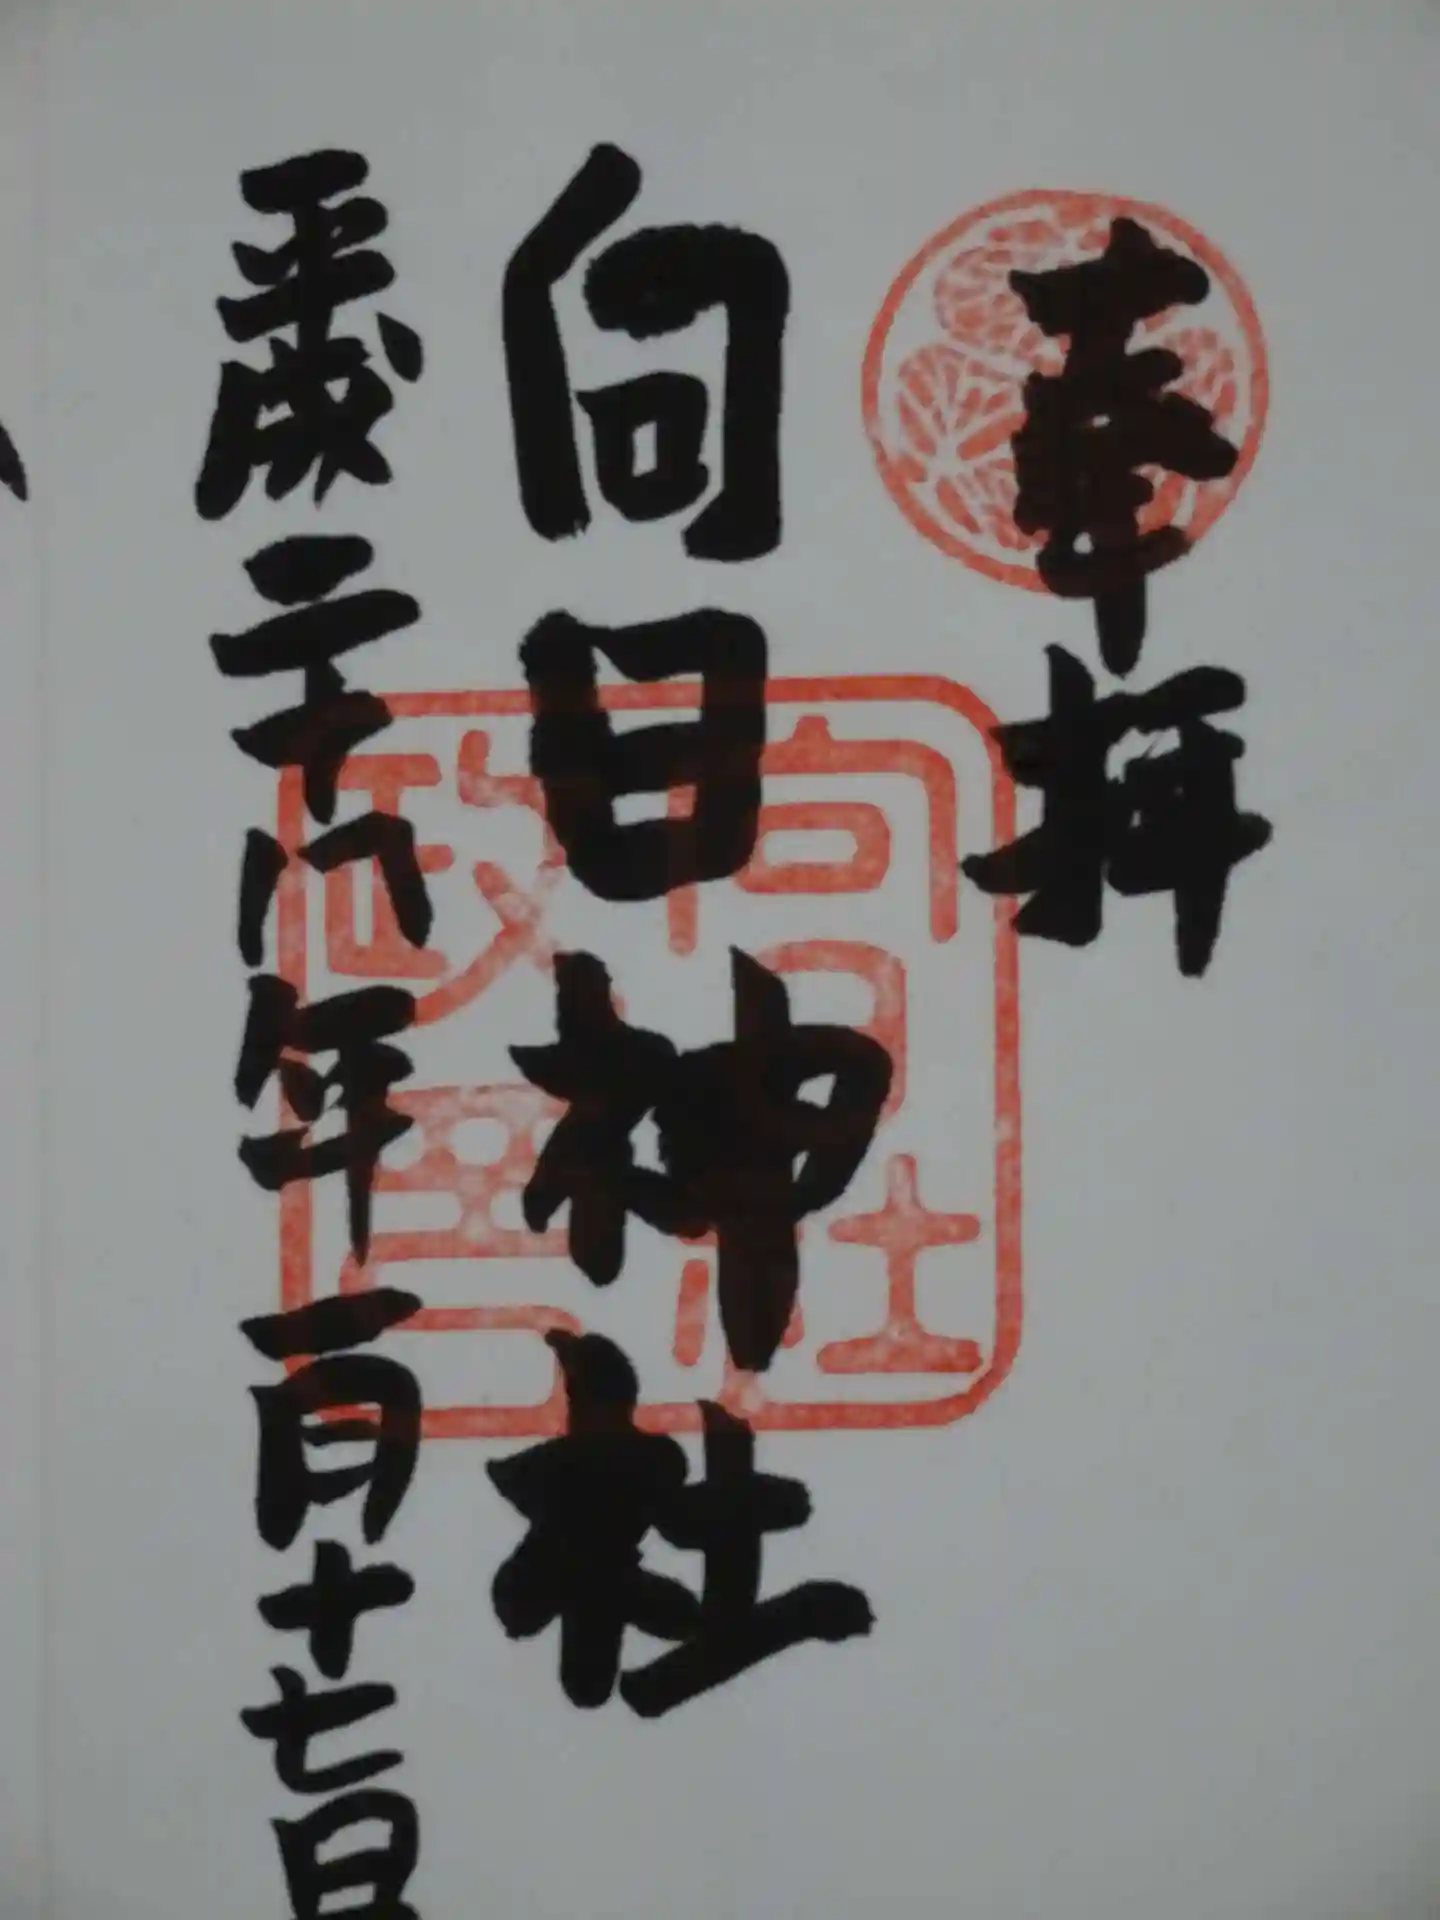 奉拝
向日神社
平成二十八年一月十七日